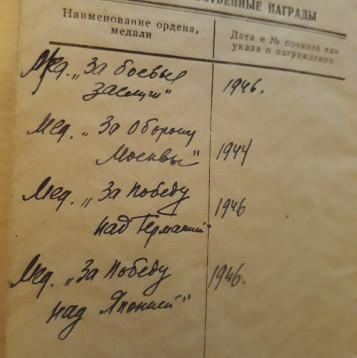 СТВЕННЫЕ НАГРАДЫ
Наименование ордена,
медали
Дата и № приказа или
указа о награждении
Мед. „За боевые
заслуги"
1946.
Мед. „За Оборону
Москвы"
1944
Мед. „За Победу
над Германией"
1946
Мед. „За Победу
над Японией"
1946.